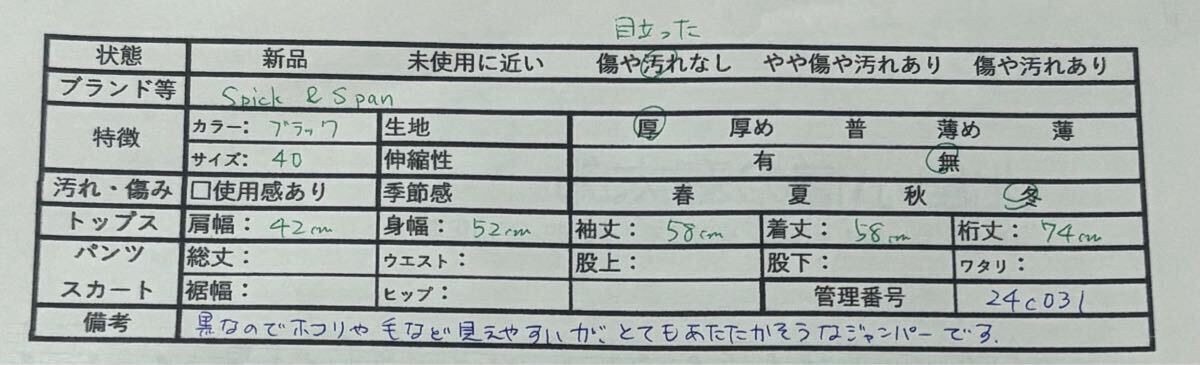 目立った
状態 新品 未使用に近い 傷や汚れなし やや傷や汚れあり 傷や汚れあり
ブランド等 Spick & Span
特徴 カラー: ブラック 生地 厚 厚め 普 薄め 薄
サイズ: 40 伸縮性 有 無
汚れ・傷み □使用感あり 季節感 春 夏 秋 冬
トップス 肩幅: 42cm 身幅: 52cm 袖丈: 58cm 着丈: 58cm 裄丈: 74cm
パンツ 総丈: ウエスト: 股上: 股下: ワタリ:
スカート 裾幅: ヒップ: 管理番号 24c031
備考 黒なのでホコリや毛など見えやすいが、とてもあたたかそうなジャンパーです.